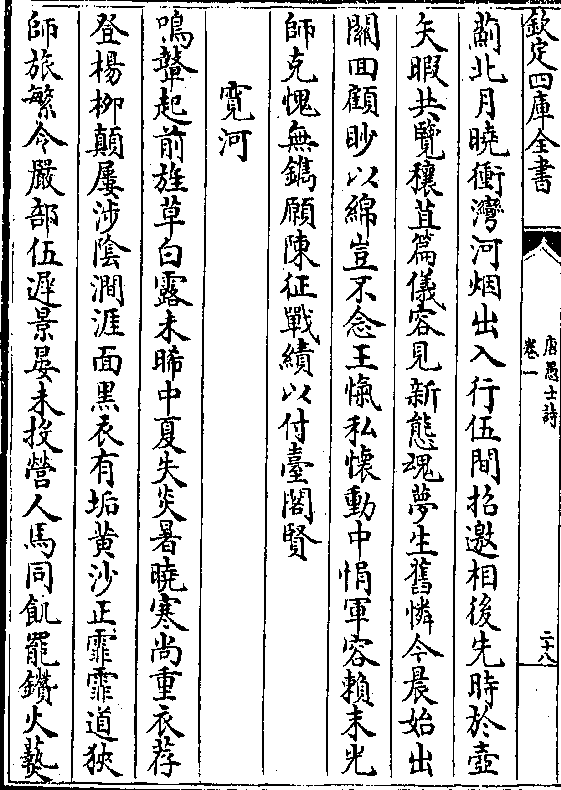 欽定四庫全書
唐愚士詩
卷一
二十八
薊北月曉衝灣河烟出入行伍間招邀相後先時於壺
矢暇共覽穰苴篇儀容見新態魂夢生舊憐今晨始出
關回顧眇以綿豈不念王愾私懷動中悁軍容賴末光
師克愧無鐫願陳征戰績以付臺閣賢
寛河
鳴鼙起前旌草白露未晞中夏失炎暑曉寒尚重衣荐
登楊柳顛屢涉陰澗涯面黒衣有垢黄沙正霏霏道狹
師旅繁令嚴部伍遲景晏未投營人馬同飢罷鑽火爇